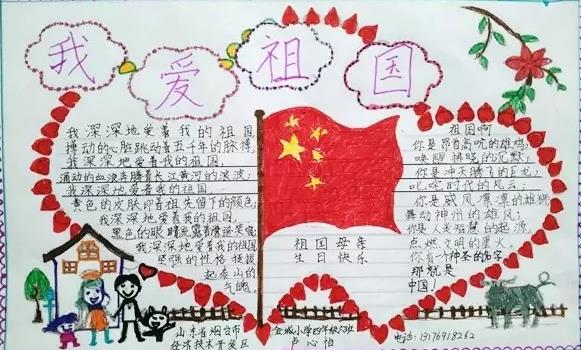 我爱祖国
我深深地爱着我的祖国
搏动的心脏跳动着五千年的脉搏
我深深地爱着我的祖国
涌动的血浪奔腾着长江黄河的波波
我深深地爱着我的祖国
黄色的皮肤印着祖先留下的颜色
我深深地爱着我的祖国
黑色的眼睛流露着谦逊笑容
我深深地爱着我的祖国
坚强的性格挺拔
起泰山的
气魄。
祖国母亲
生日快乐
祖国啊
你是昂首高吭的雄鸡;
唤醒拂晓的沉默,
你是冲天腾飞的巨龙;
叱咤时代的风云;
你是威风凛凛的雄狮
舞动神州的雄风;
你是人类智慧的起源,
点燃文明的星火。
你有一个神圣的名字
那就是
中国!
山东省烟台市
经济技术开发区
金城小学四年级六班
卢心怡
电话:13176918262